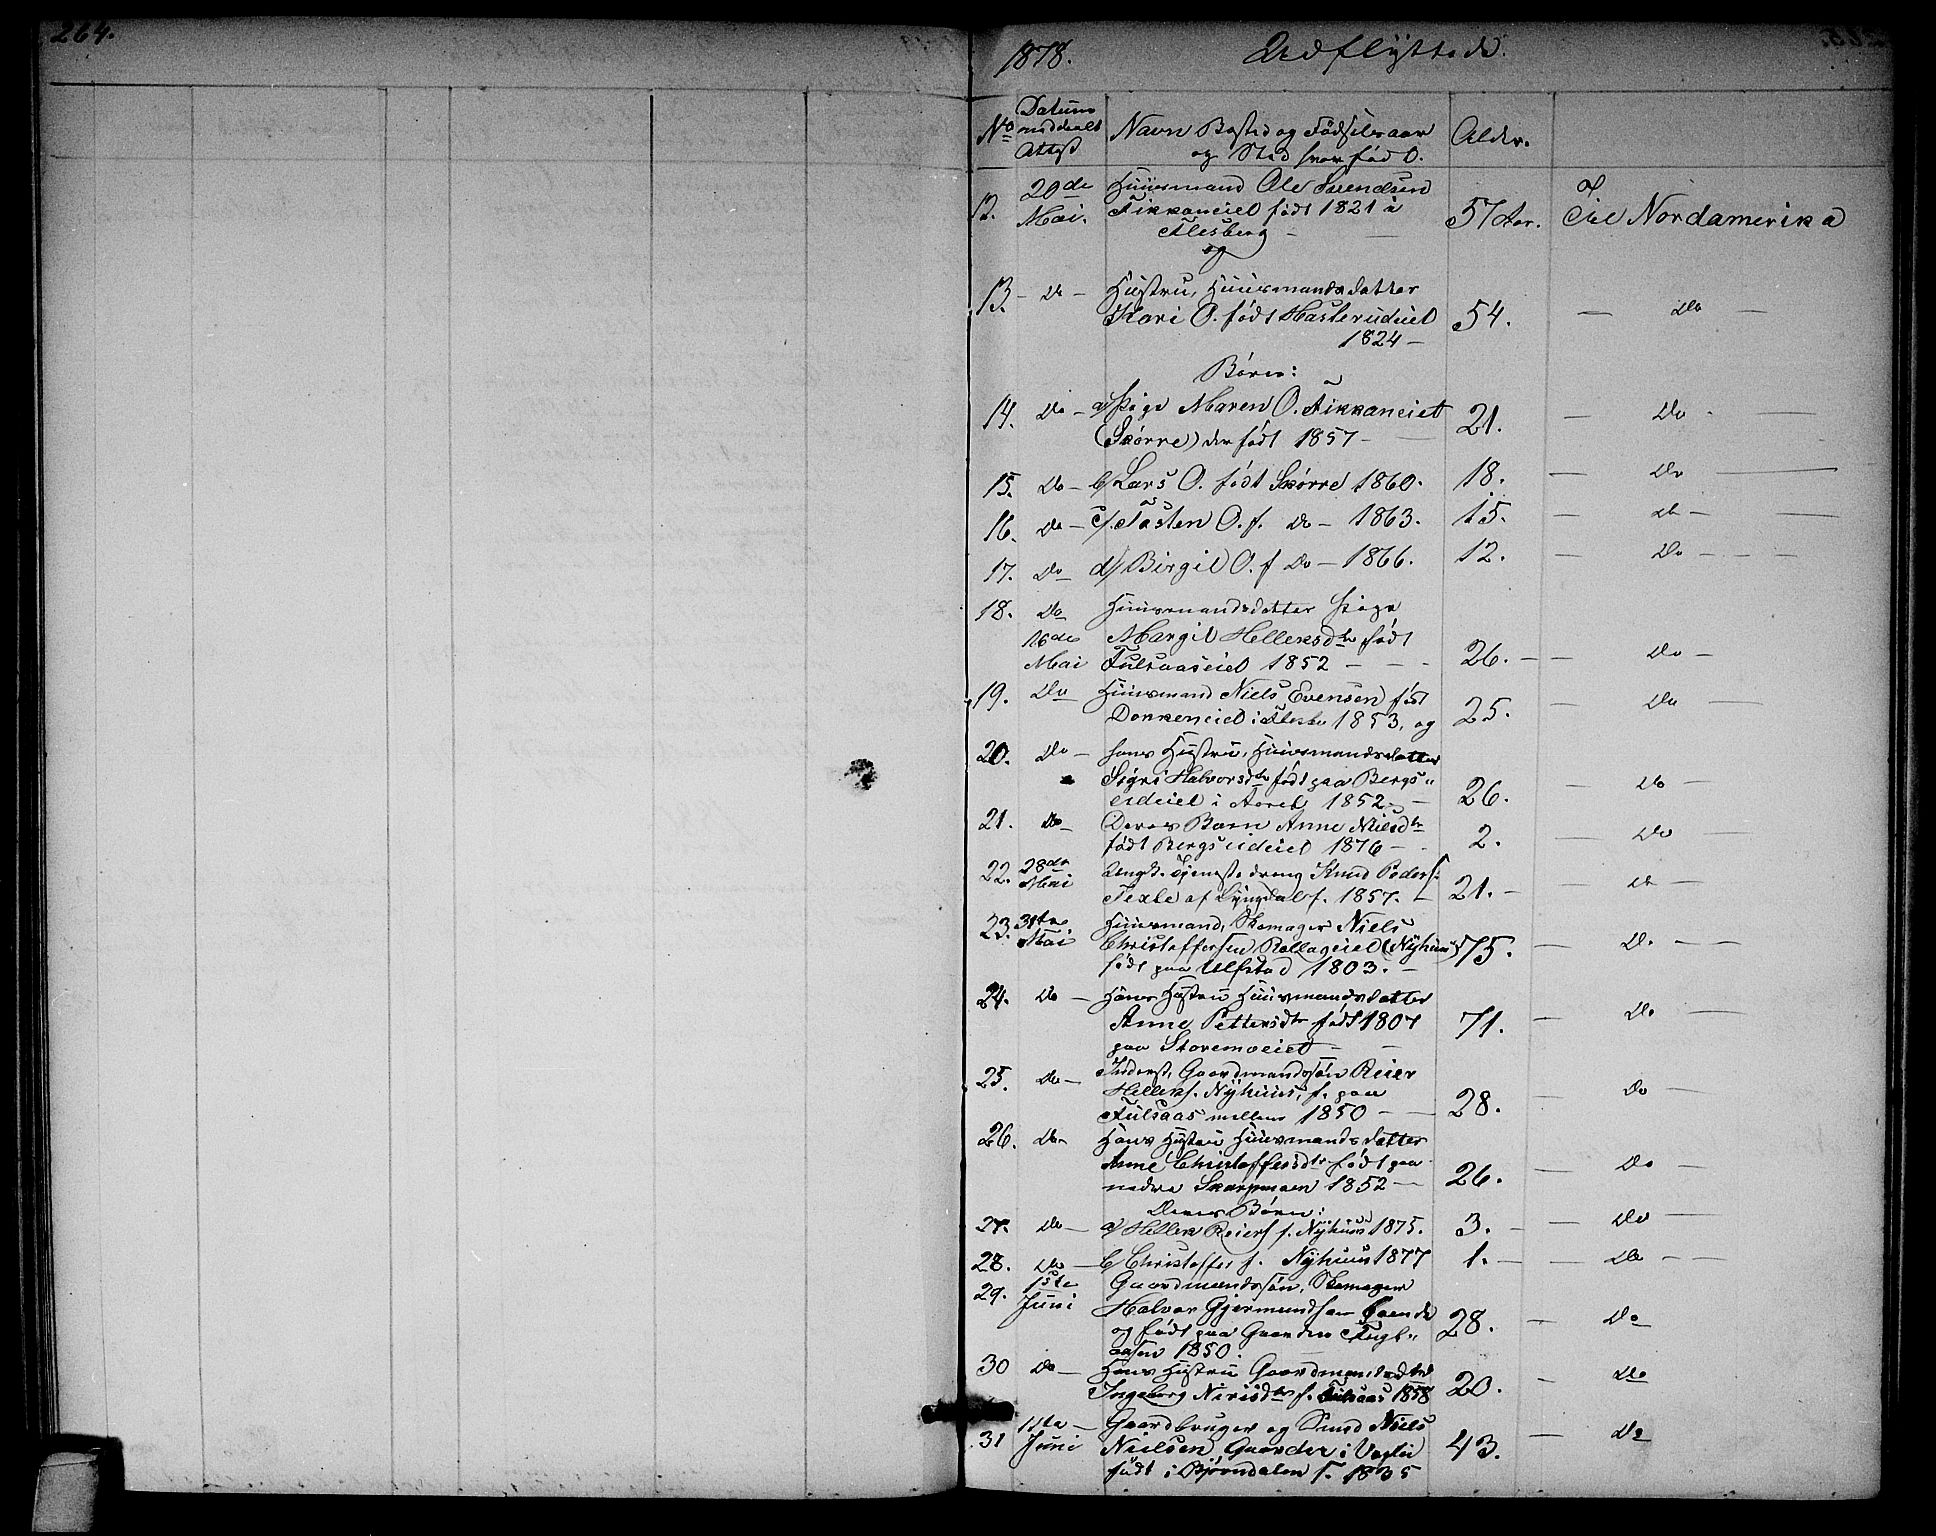 264.
1878. Udflyttede.
No
Datum
meddealt
Attest
Navn Bosted og Fødselsaar
og Sted hvor fød O.
Alder.
12. 20de Mai.
Huusmand Ole Svendsen
Fikkaneiet født 1821 i
Flesberg
57 Aar. Til Nordamerika
og
13. Do Hustru, Huusmandsdatter
Kari O. født Hasterudeiet
1824
54. Do
Børn:
14. Do a/ Pige Maren O. Fikkaneiet
(Skørre) der født 1857
21. Do
15. Do b/ Lars O. født Skørre 1860. 18. Do
16. Do c/ Tosten O. f. Do 1863. 15. Do
17. Do d/ Birgit O. f Do 1866. 12. Do
18. Do Huusmandsdatter Pige
16de Mai Margit Helleksdtr født
Fulsaaseiet 1852 26. Do
19. Do Huusmand Niels Evensen født
Donkeneiet i Flesb. 1853, og 25. Do
20. Do hans Hustru, Huusmandsdatter
Sigri Halvorsdtr født paa Bergs"
erdeiet i Aaret 1852. 26. Do
21. Do Deres Barn Anne Nielsdtr
født Bergserdeiet 1876 2. Do
22. 28de Mai Ungk. Tjenestedreng Knud Peders.
Texle af Lyngdal f. 1857. 21. Do
23. 31te Mai Huusmand, Skomager Niels
Christoffersen Rollageiet (Nyhuus)
født paa Ulfstad 1803. 75. Do
24. Do Hans Hustru Huusmandsdatter
Anne Pettersdtr født 1807
paa Storemoeiet 71. Do
25. Do Inderst, Gaardmandssøn Reier
Helleks. Nyhuus, f. paa
Fulsaas mellem 1850 28. Do
26. Do Hans Hustru Huusmandsdatter
Anne Christoffersdtr født paa
nedre Skarpmoen 1852 26. Do
Deres Børn:
27. Do a/ Hellek Reiers. f. Nyhuus 1875. 3. Do
28. Do b/ Christoffer f. Nyhuus 1877 1. Do
29. 1ste Juni Gaardmandssøn, Skomager
Halvor Gjermundsen boende
og født paa Gaarden Fugl"
aasen 1850. 28. Do
30 Do Hans Hustru Gaardmandsdtr
Ingeborg Nirisdtr f. Fulsaas 1858 20. Do
31 11te Juni Gaardbruger og Smed Niels
Nielsen, Gaarder i Vegli
født i Bjørndalen f. 1835 43. Do